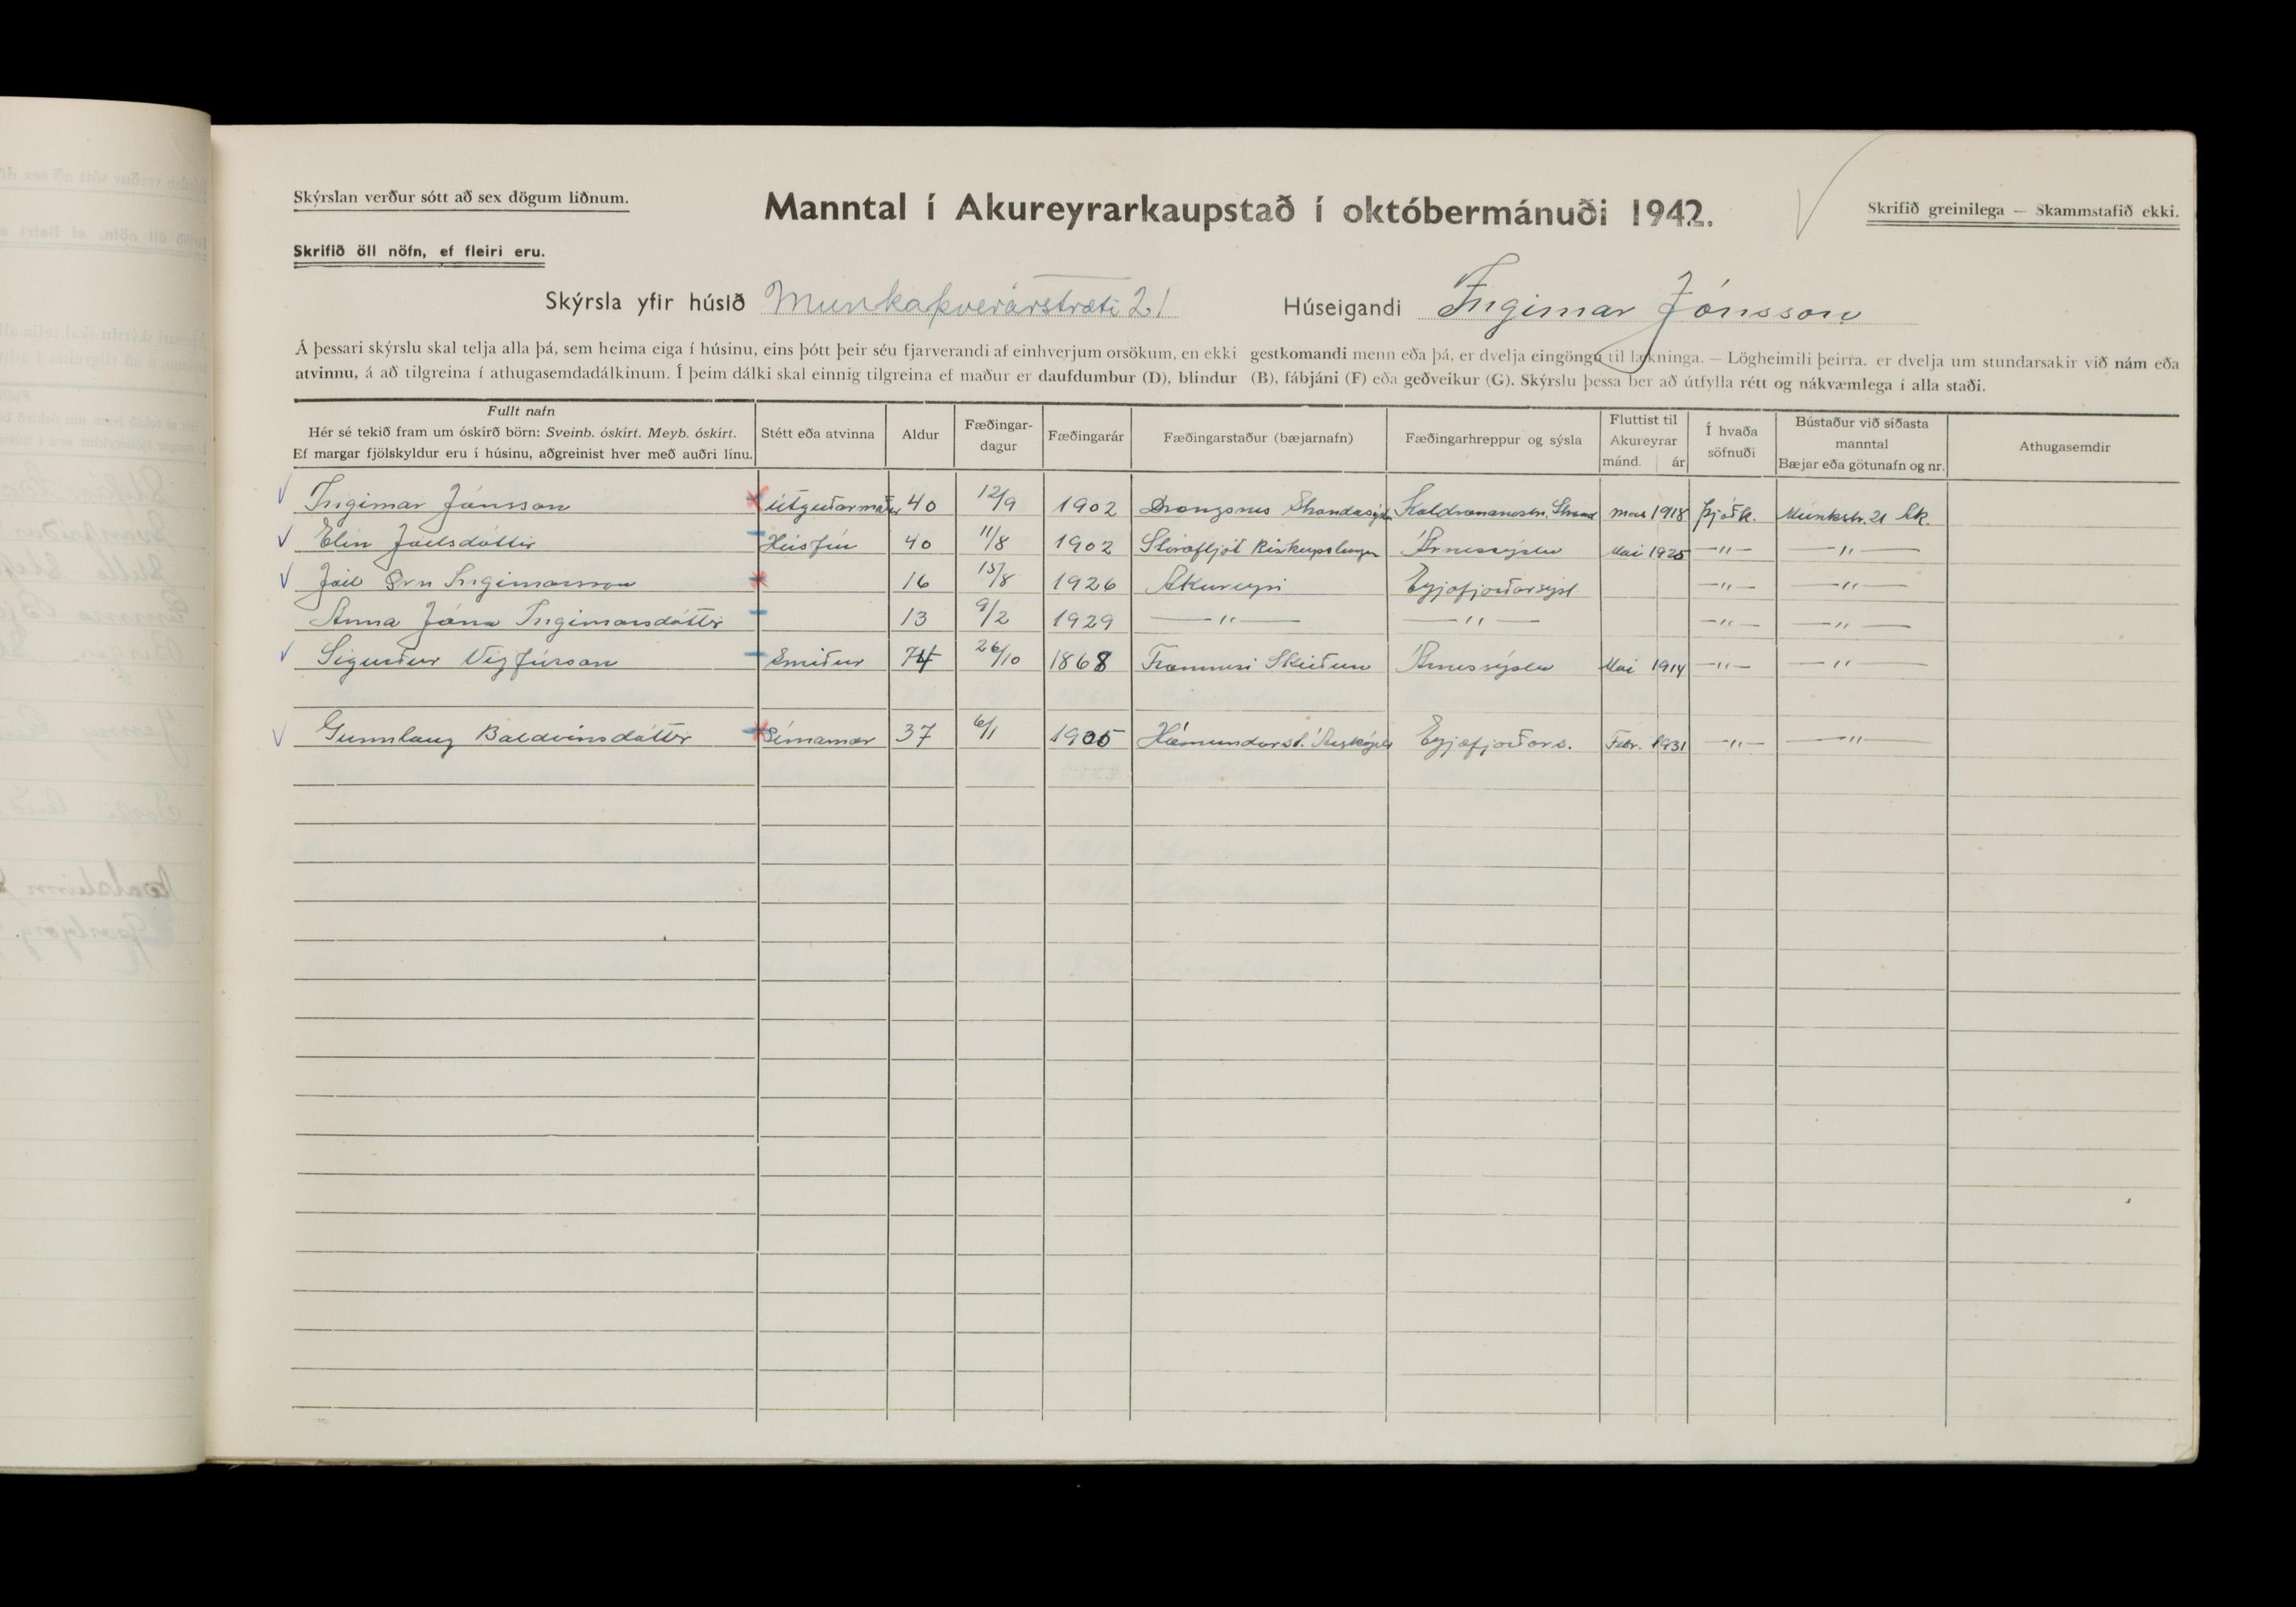 Skýrslan verður sótt að sex dögum liðnum.
Manntal í Akureyrarkaupstað í októbermánuði 1942.
Skrifið greinilega — Skammstafið ekki.
Skrifið öll nöfn, ef fleiri eru.
Skýrsla yfir húsið Munkaþverárstræti 21 Húseigandi Ingimar Jónsson
Á þessari skýrslu skal telja alla þá, sem heima eiga í húsinu, eins þótt þeir séu fjarverandi af einhverjum orsökum, en ekki gestkomandi menn eða þá, er dvelja eingöngu til lækninga. — Lögheimili þeirra. er dvelja um stundarsakir við nám eða
atvinnu, á að tilgreina í athugasemdadálkinum. Í þeim dálki skal einnig tilgreina ef maður er daufdumbur (D), blindur (B), fábjáni (F) eða geðveikur (G). Skýrslu þessa ber að útfylla rétt og nákvæmlega í alla staði.
Fullt nafn
Hér sé tekið fram um óskírð börn: Sveinb. óskírt. Meyb. óskírt.
Ef margar fjölskyldur eru í húsinu, aðgreinist hver með auðri línu.
Stétt eða atvinna
Aldur
Fæðingar-
dagur
Fæðingarár
Fæðingarstaður (bæjarnafn)
Fæðingarhreppur og sýsla
Fluttist til
Akureyrar
mánd. ár
Í hvaða
söfnuði
Bústaður við síðasta
manntal
Bæjar eða götunafn og nr.
Athugasemdir
Ingimar Jónsson Útgerðarmaður 40 12/9 1902 Drangsnes Kaldrananeshr. Strand mai 1918 Þjóðk. Munkstr. 21 Ak.
Elín Jóelsdóttir Húsfrú 40 11/8 1902 Árnessýslu Mai 1925 —"— —"—
Jóel Örn Ingimarsson 16 15/8 1926 Akureyri Eyjafjarðarsýsl —"— —"—
Anna Jóna Ingimarsdóttir 13 9/2 1929 —"— —"— —"— —"—
Sigurður Vigfússon Smiður 74 26/10 1868 Framnesi Skeiðum Árnessýslu Mai 1914 —"— —"—
Gunnlaug Baldvinsdóttir Símamær 37 6/1 1905 Hámundarst. Eyjafjarðars. Febr. 1931 —"— —"—